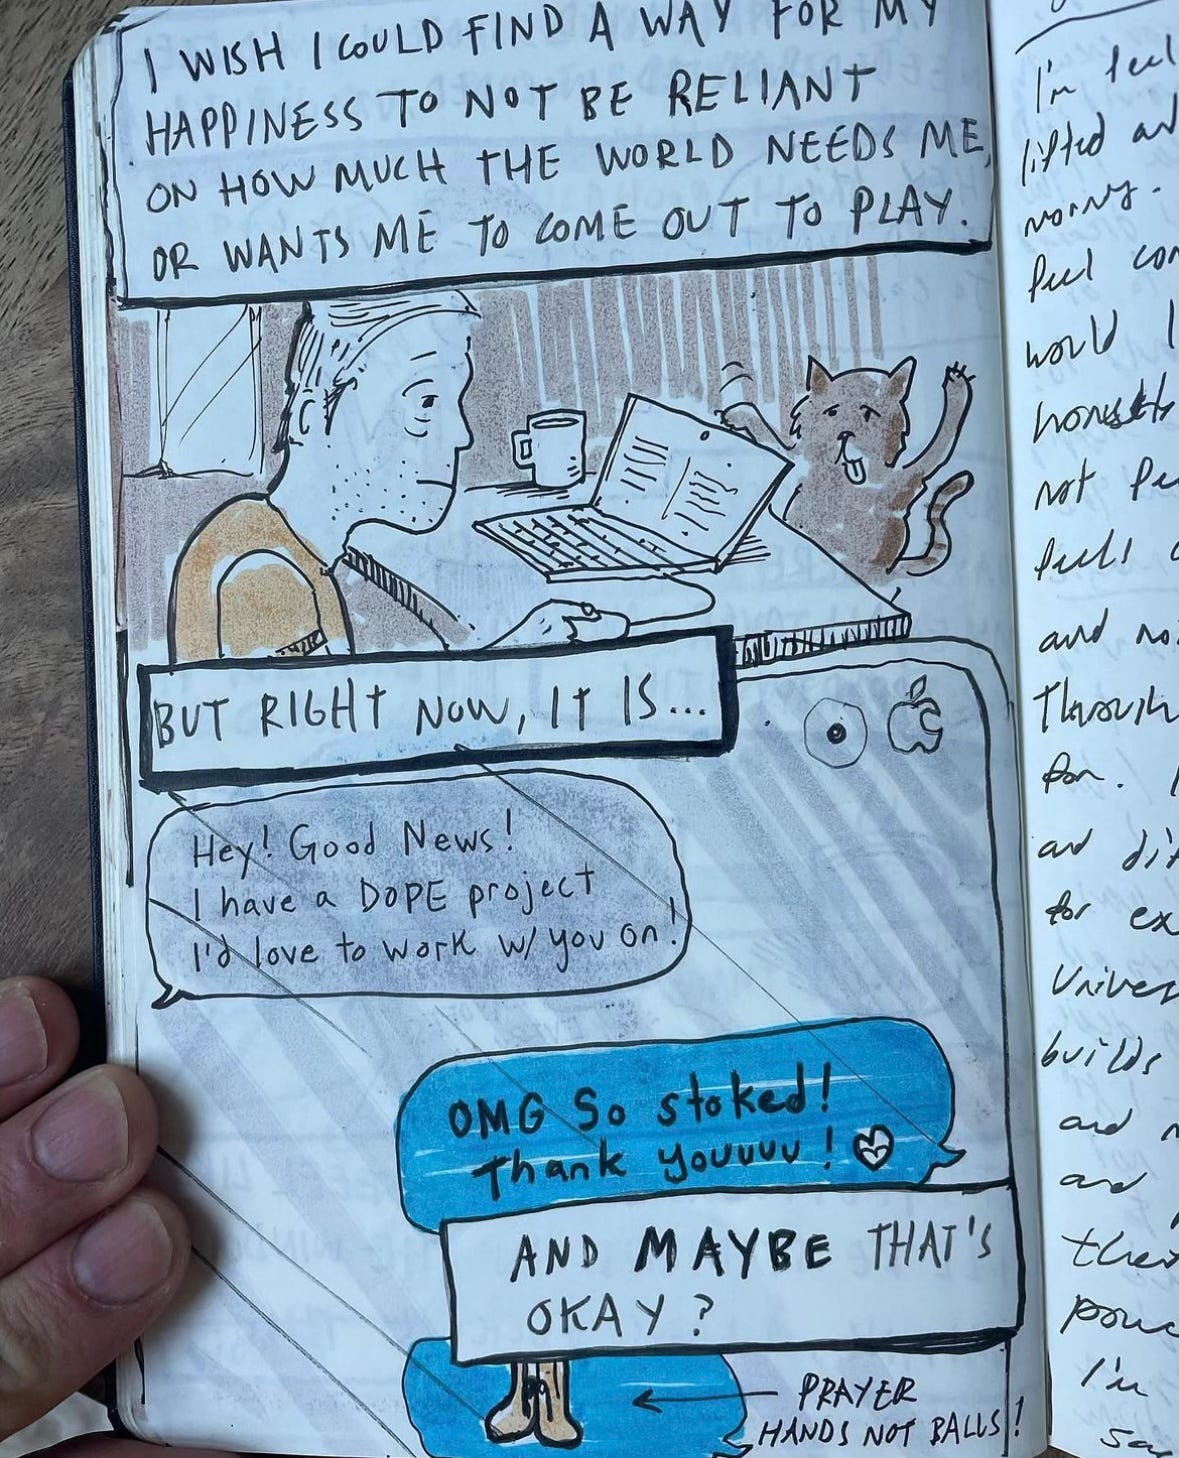 I WISH I COULD FIND A WAY FOR MY
HAPPINESS TO NOT BE RELIANT
ON HOW MUCH THE WORLD NEEDS ME,
OR WANTS ME TO COME OUT TO PLAY.
BUT RIGHT NOW, IT IS...
Hey! Good News!
I have a DOPE project
I'd love to work w/ you on!
OMG So stoked!
Thank youuuu!
AND MAYBE THAT'S
OKAY?
PRAYER
HANDS NOT BALLS!
I'm feel
lifted and
Feel con
would I
not
and
Through
for
ex
builds
and
and
I'm